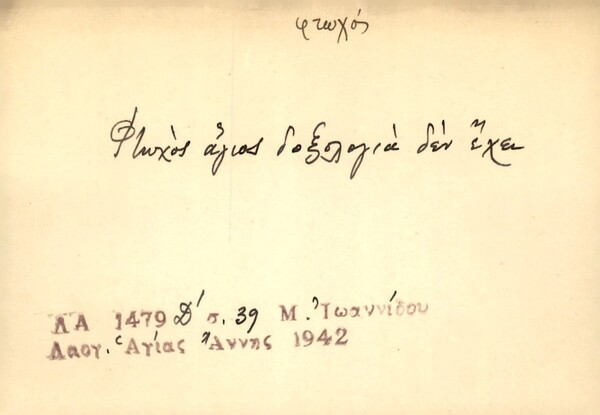 φτωχός
Φτωχὸς ἅγιος δοξολογιά δέν ἔχει
ΛΑ 1479 Δ' σ. 39 Μ. Ἰωαννίδου
Λαογ. Ἁγίας Ἄννης 1942